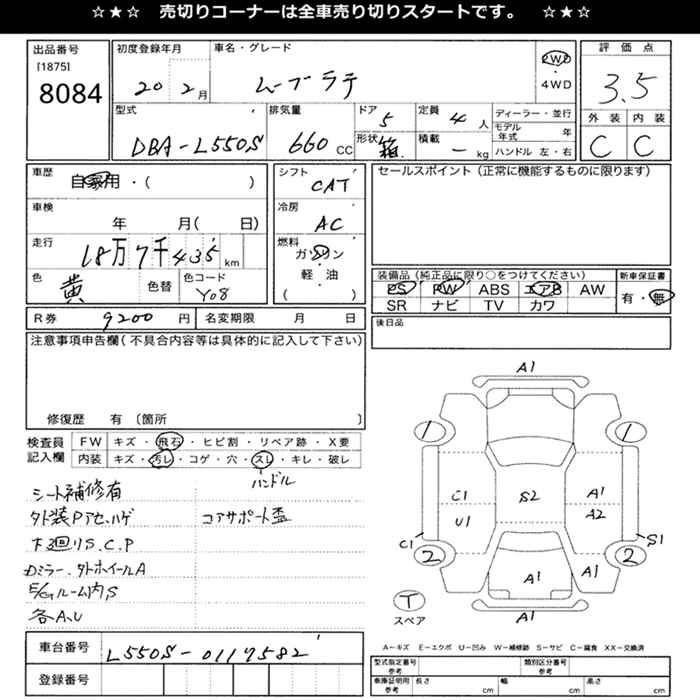 ☆★☆ 売切りコーナーは全車売り切りスタートです。 ☆★☆
出品番号 初度登録年月 車名・グレード 評価点
[1875]
8084
20年 2月 ムーブラテ 2WD・4WD 3.5
外装 内装
C C
型式 排気量 ドア 定員 ディーラー・並行
DBA-L550S 660CC 5 4人 モデル年式 年
形状 箱 積載 - kg ハンドル 左・右
車歴 自家用・( )
シフト CAT
セールスポイント(正常に機能するものに限ります)
車検 年 月( 日)
冷房 AC
走行 18万7千435km
燃料 ガソリン・軽・油 ( )
色 黄 色替 色コード Y08
装備品(純正品に限り○をつけてください) 新車保証書
PS PW ABS エアB AW 有・無
SR ナビ TV カワ
R券 9200円 名変期限 月 日
後日品
注意事項申告欄(不具合内容等は具体的に記入して下さい)
修復歴 有 〔箇所 〕
検査員記入欄
FW キズ・飛石・ヒビ割・リペア跡・X要
内装 キズ・汚レ・コゲ・穴・スレ・キレ・破レ
ハンドル
シート補修有
外装Pアセ、ハゲ コアサポート歪
下回りS.C.P
ドミラー、タホイールA
E/Gルーム内S
各A、U
車台番号 L550S-0117582
登録番号
A1
1 1
C1 S2 A1
U1 A2
C1 S1
2 2
A1 A1
T
スペア
A1
A-キズ E-エクボ U-凹み W-補修跡 S-サビ C-腐食 XX-交換済
型式指定番号参考 類別区分番号参考
車庫証明用参考 長さ cm 幅 cm 高さ cm